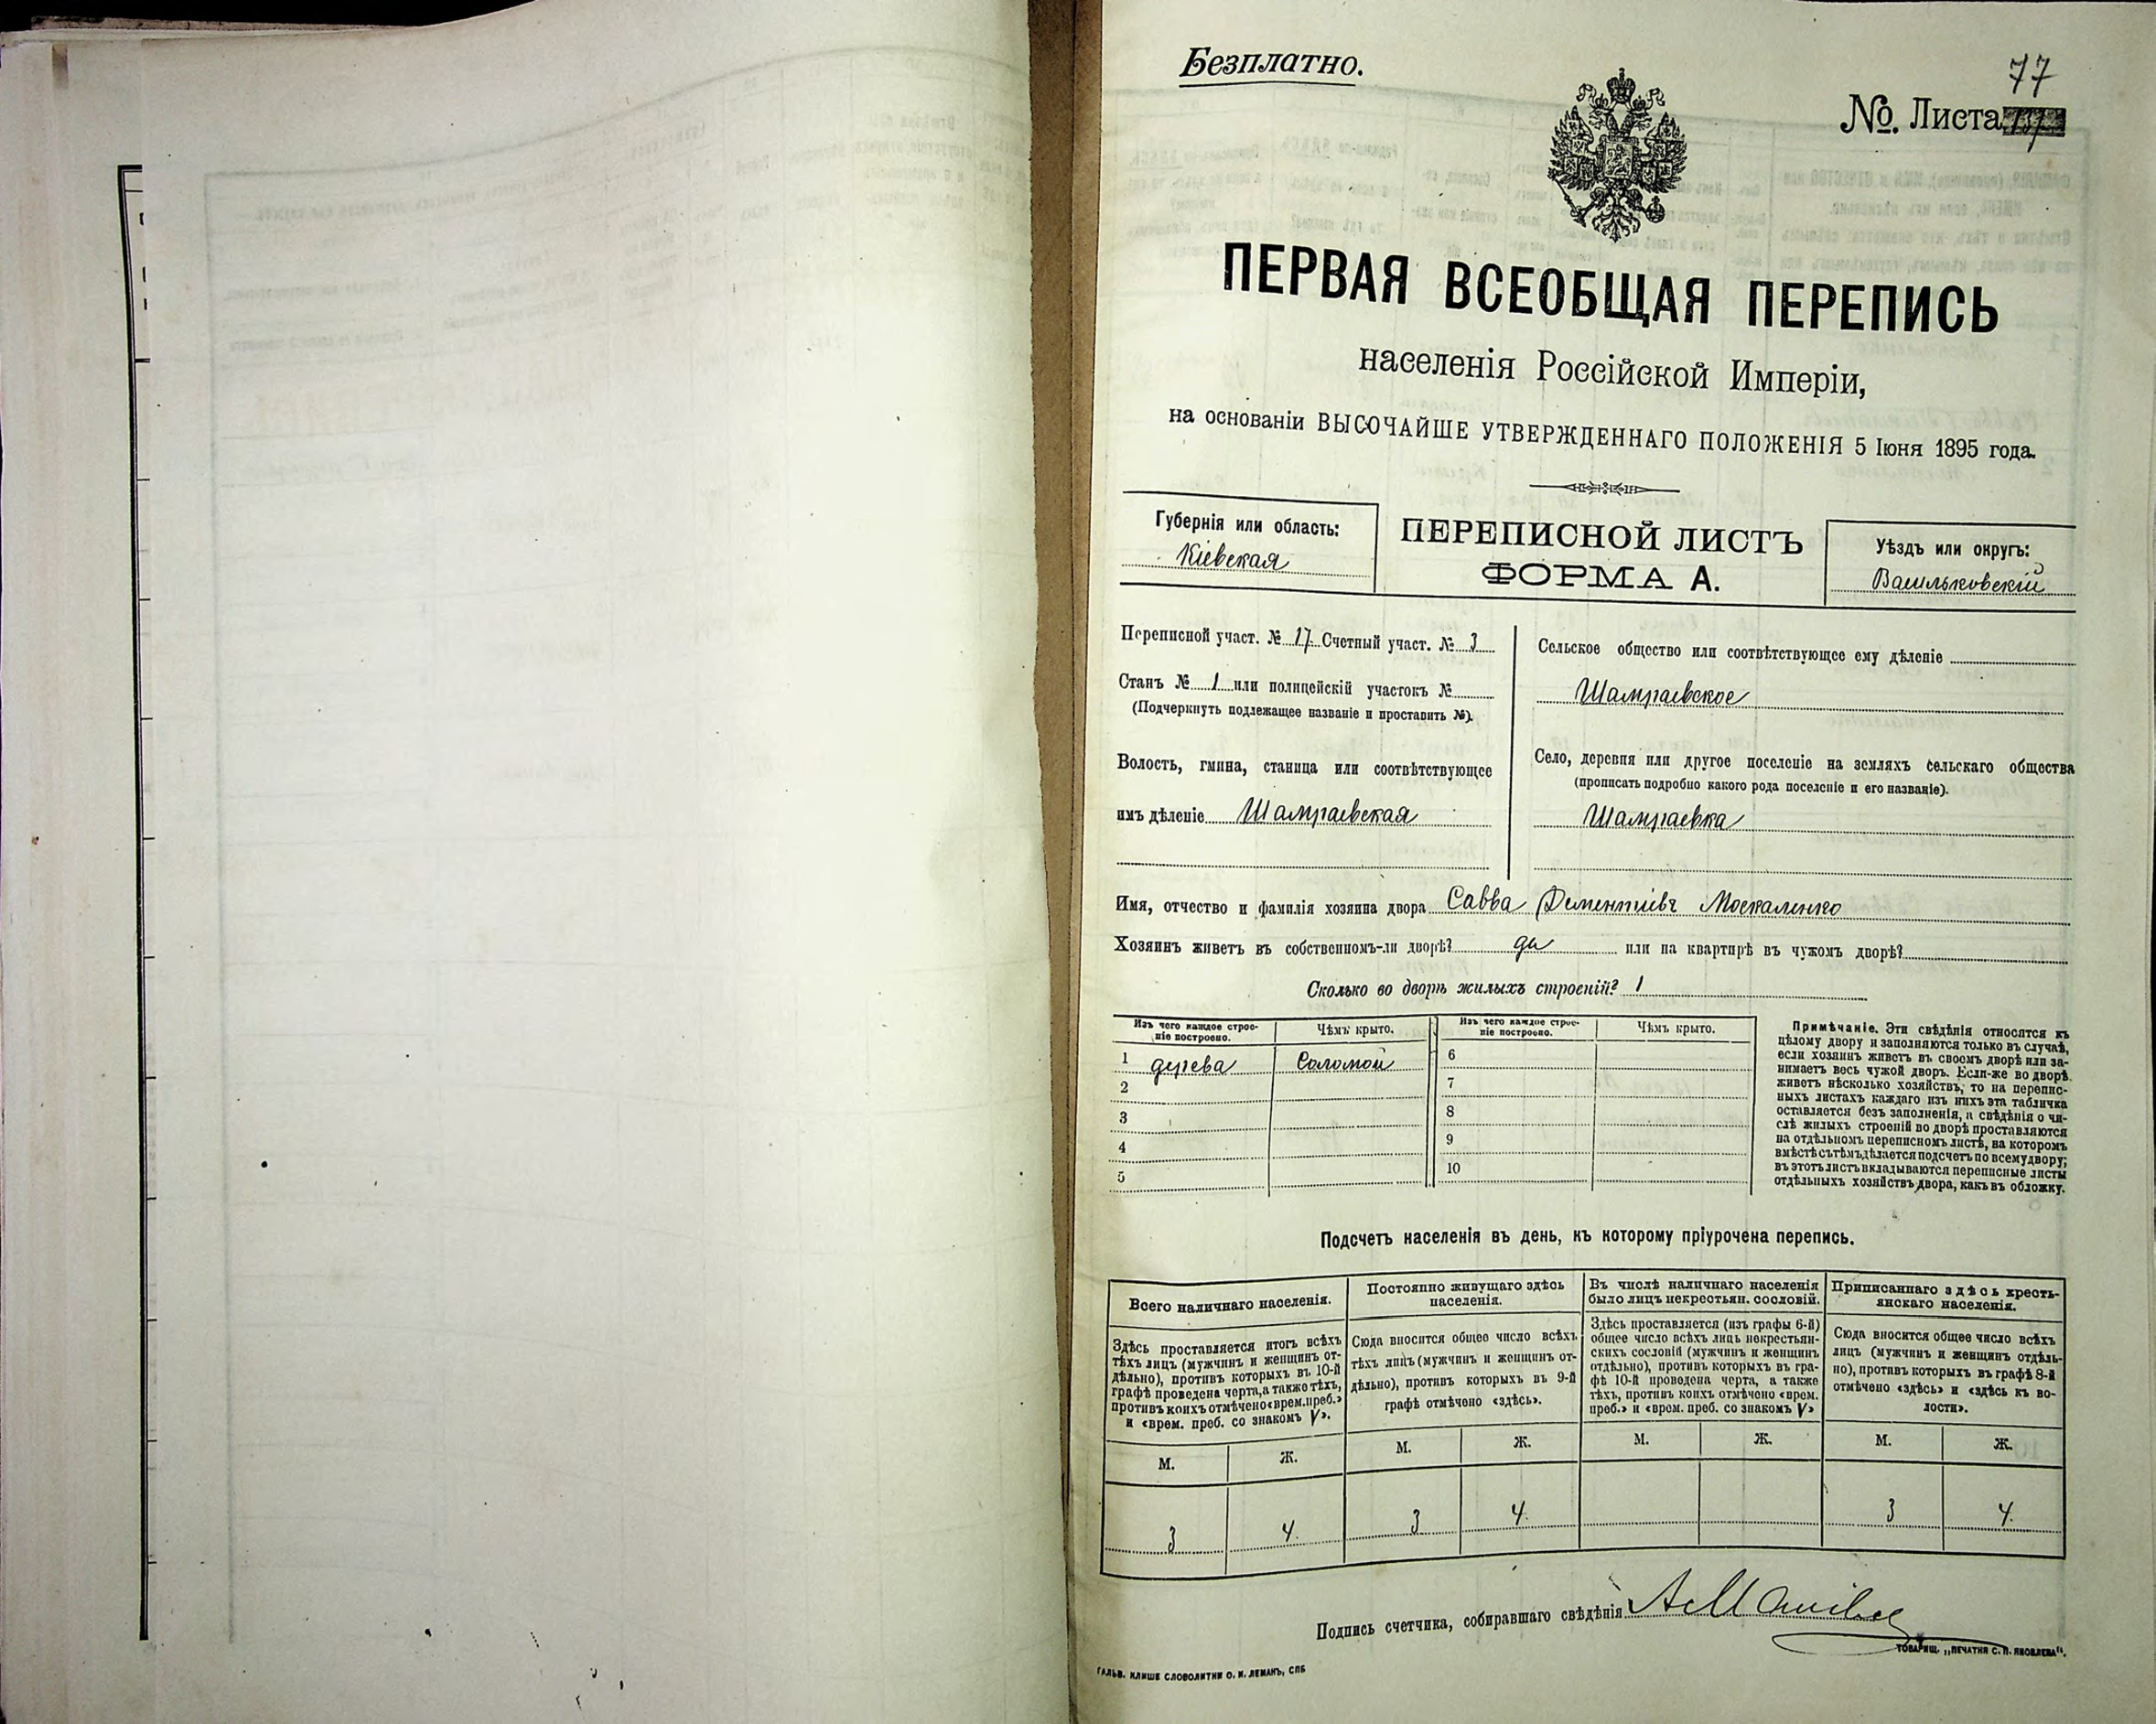 Безплатно.
77
№. Листа
ПЕРВАЯ ВСЕОБЩАЯ ПЕРЕПИСЬ
населенія Россійской Имперіи,
на основаніи ВЫСОЧАЙШЕ УТВЕРЖДЕННАГО ПОЛОЖЕНІЯ 5 Іюня 1895 года.
Губернія или область:
Кіевская
ПЕРЕПИСНОЙ ЛИСТЪ
ФОРМА А.
Уѣздъ или округъ:
Васильковскій
Переписной участ. № 17 Счетный участ. № 3
Станъ № 1 или полицейскій участокъ №
(Подчеркнуть подлежащее названіе и проставить №).
Волость, гмина, станица или соотвѣтствующее
имъ дѣленіе Шамраевская
Сельское общество или соотвѣтствующее ему дѣленіе
Шамраевское
Село, деревня или другое поселеніе на земляхъ сельскаго общества
(прописать подробно какого рода поселеніе и его названіе).
Шамраевка
Имя, отчество и фамилія хозяина двора Савва Дементіевъ Москаленко
Хозяинъ живетъ въ собственномъ-ли дворѣ? да или на квартирѣ въ чужомъ дворѣ?
Сколько во дворѣ жилыхъ строеній? 1
Изъ чего каждое строе-
ніе построено.
Чѣмъ крыто.
1 дерева Соломой
2
3
4
5
Изъ чего каждое строе-
ніе построено.
Чѣмъ крыто.
6
7
8
9
10
Примѣчаніе. Эти свѣдѣнія относятся къ
цѣлому двору и заполняются только въ случаѣ,
если хозяинъ живетъ въ своемъ дворѣ или за-
нимаетъ весь чужой дворъ. Если-же во дворѣ
живетъ нѣсколько хозяйствъ, то на перепис-
ныхъ листахъ каждаго изъ нихъ эта табличка
оставляется безъ заполненія, а свѣдѣнія о чи-
слѣ жилыхъ строеній во дворѣ проставляются
на отдѣльномъ переписномъ листѣ, на которомъ
вмѣстѣ съ тѣмъ дѣлается подсчетъ по всему двору;
въ этотъ листъ вкладываются переписные листы
отдѣльныхъ хозяйствъ двора, какъ въ обложку.
Подсчетъ населенія въ день, къ которому пріурочена перепись.
Всего наличнаго населенія.
Здѣсь проставляется итогъ всѣхъ
тѣхъ лицъ (мужчинъ и женщинъ от-
дѣльно), противъ которыхъ въ 10-й
графѣ проведена черта, а также тѣхъ,
противъ коихъ отмѣчено «врем. преб.»
и «врем. преб. со знакомъ V».
М. Ж.
3 4
Постоянно живущаго здѣсь
населенія.
Сюда вносится общее число всѣхъ
тѣхъ лицъ (мужчинъ и женщинъ от-
дѣльно), противъ которыхъ въ 9-й
графѣ отмѣчено «здѣсь».
М. Ж.
3 4
Въ числѣ наличнаго населенія
было лицъ некрестьян. сословій.
Здѣсь проставляется (изъ графы 6-й)
общее число всѣхъ лицъ некрестьян-
скихъ сословій (мужчинъ и женщинъ
отдѣльно), противъ которыхъ въ гра-
фѣ 10-й проведена черта, а также
тѣхъ, противъ коихъ отмѣчено «врем.
преб.» и «врем. преб. со знакомъ V»
М. Ж.
Приписаннаго здѣсь кресть-
янскаго населенія.
Сюда вносится общее число всѣхъ
лицъ (мужчинъ и женщинъ отдѣль-
но), противъ которыхъ въ графѣ 8-й
отмѣчено «здѣсь» и «здѣсь къ во-
лости».
М. Ж.
3 4
Подпись счетчика, собиравшаго свѣдѣнія
ГАЛЬВ. КЛИШЕ СЛОВОЛИТНИ О. И. ЛЕМАНЪ, СПБ
ТОВАРИЩ. „ПЕЧАТНЯ С. П. ЯКОВЛЕВА“.